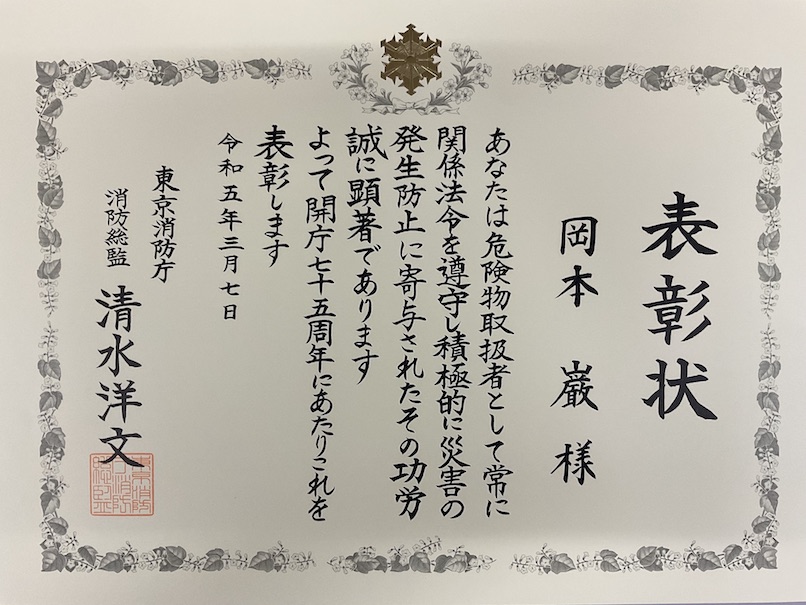 表彰状
岡本 巌 様
あなたは危険物取扱者として常に
関係法令を遵守し積極的に災害の
発生防止に寄与されたその功労
誠に顕著であります
よって開庁七十五周年にあたりこれを
表彰します
令和五年三月七日
東京消防庁
消防総監 清水洋文